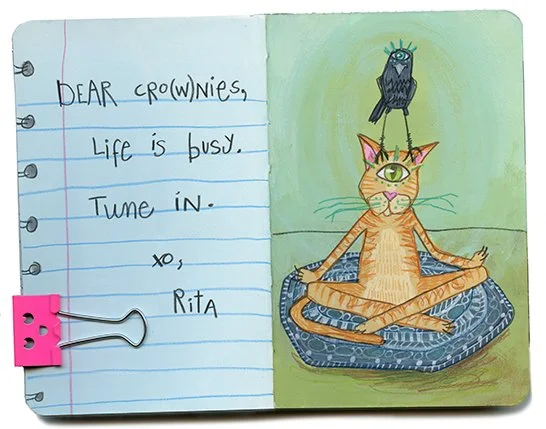 DEAR CRO(W)NIES,
Life is busy.
Tune in.
xo,
RitA